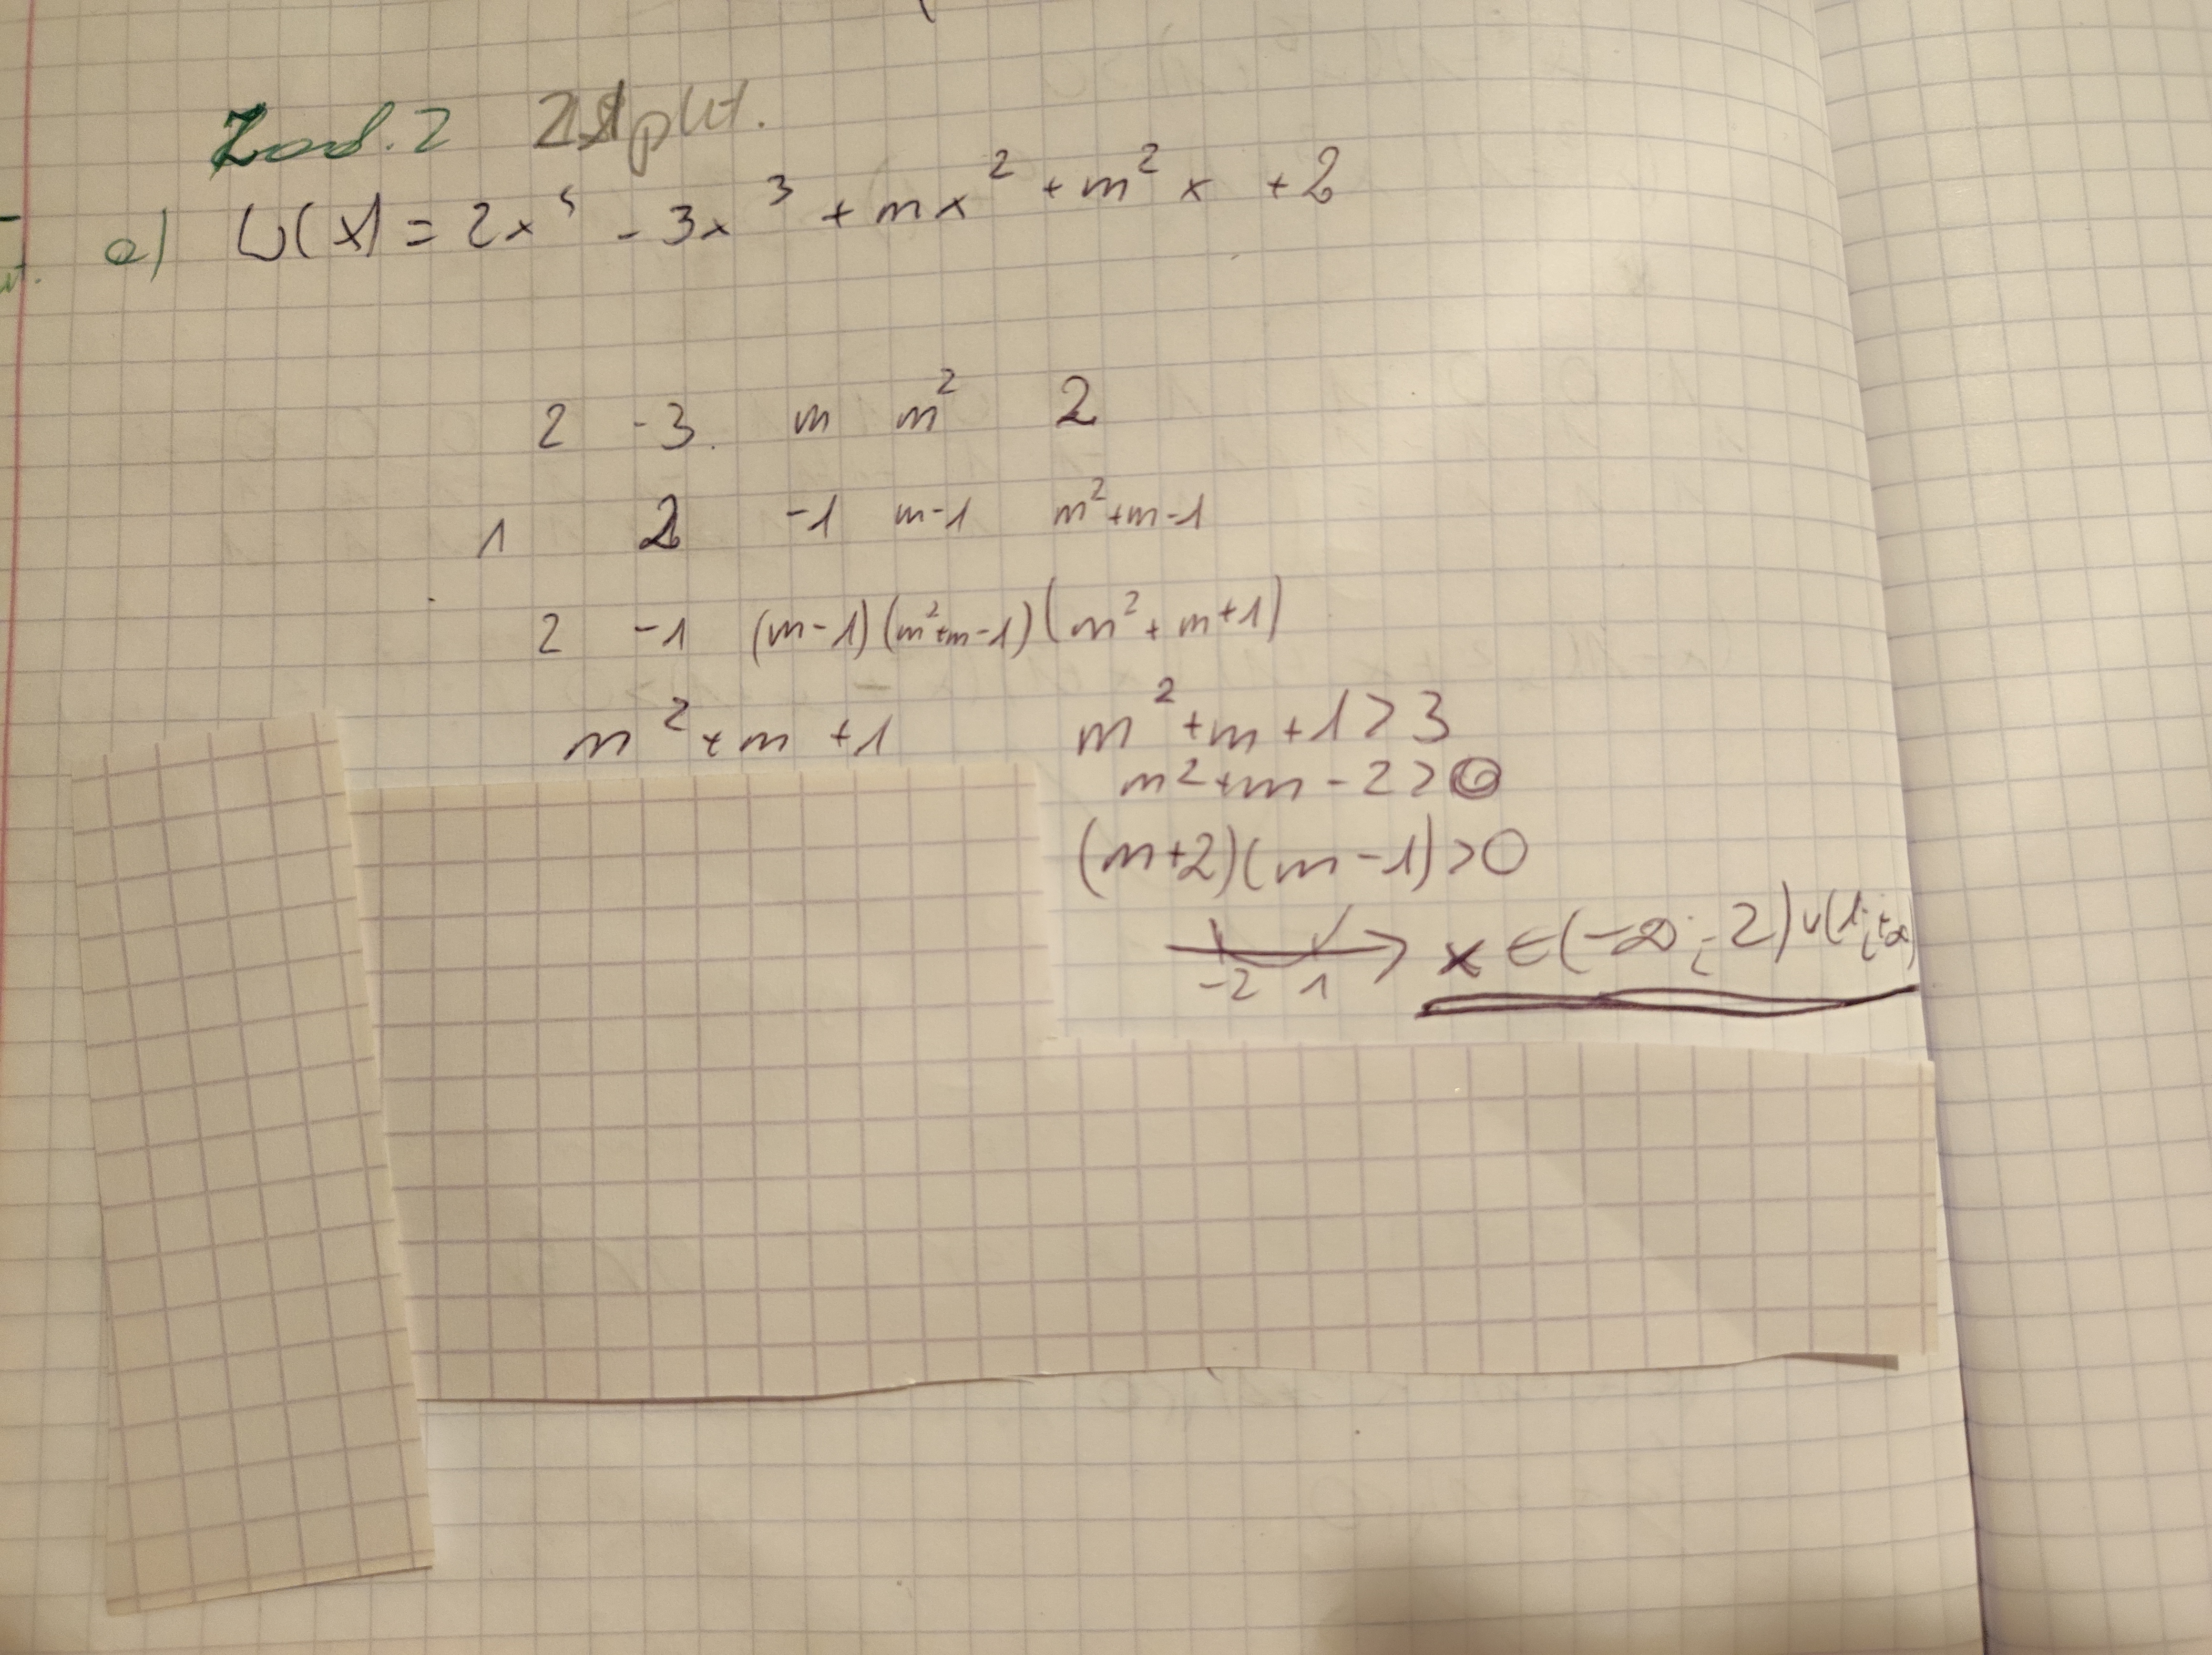 Zad. 2
a) W(x) = 2x⁴ - 3x³ + mx² + m²x + 2
2 -3 m m² 2
1 2 -1 m-1 m²+m-1
2 -1 (m-1) (m²+m-1) (m²+m+1)
m²+m+1 m²+m+1>3
m²+m-2>0
(m+2)(m-1)>0
-2 1 x∈(-∞;-2)∪(1;+∞)